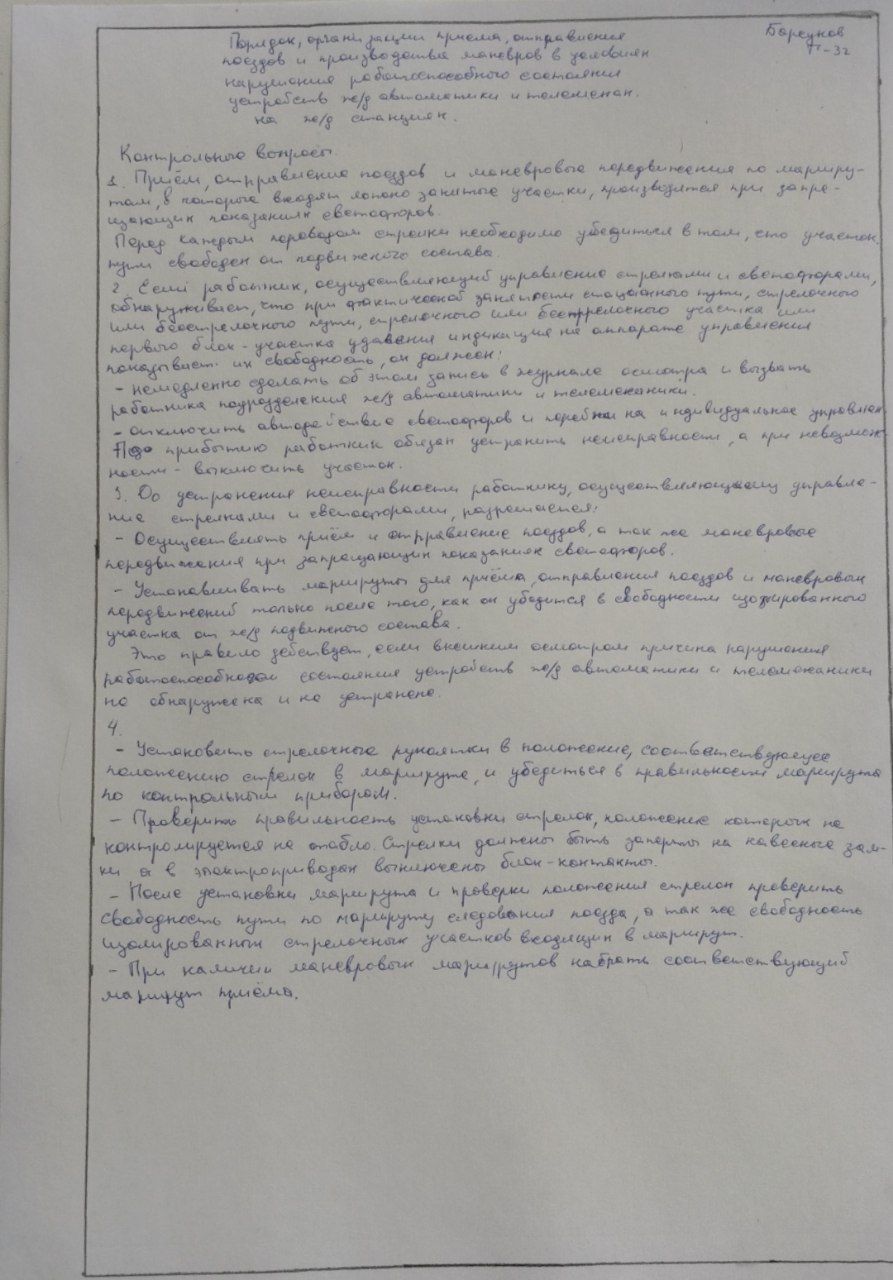 Порядок, организации приема, отправления
Барсуков
поездов и производства маневров в условиях
П-32
нарушения работоспособного состояния
устройств ж/д автоматики и телемехан.
на ж/д станциях.
Контрольные вопросы.
1. Приём, отправление поездов и маневровые передвижения по маршру-
там, в которые входят ложно занятые участки, производятся при запре-
щающих показаниях светофоров.
Перед каждым переводом стрелки необходимо убедиться в том, что участок
пути свободен от подвижного состава.
2. Если работник, осуществляющий управление стрелками и светофорами,
обнаруживает, что при фактической занятости станционного пути, стрелочного
или бесстрелочного пути, стрелочного или бесстрелочного участка или
первого блок-участка удаления индикация на аппарате управления
показывает их свободность, он должен:
- немедленно сделать об этом запись в журнале осмотра и вызвать
работника подразделения ж/д автоматики и телемеханики.
- отключить автодействие светофоров и перейти на индивидуальное управлен.
По прибытию работник обязан устранить неисправности, а при невозмож-
ности - выключить участок.
3. До устранения неисправности работнику, осуществляющему управле-
ние стрелками и светофорами, разрешается:
- Осуществлять приём и отправление поездов, а так же маневровые
передвижения при запрещающих показаниях светофоров.
- Устанавливать маршруты для приёма, отправления поездов и маневровых
передвижений только после того, как он убедится в свободности изолированного
участка от ж/д подвижного состава.
Это правило действует, если внешним осмотром причина нарушения
работоспособного состояния устройств ж/д автоматики и телемеханики
не обнаружена и не устранена.
4.
- Установить стрелочные рукоятки в положение, соответствующее
положению стрелок в маршруте, и убедиться в правильности маршрута
по контрольным приборам.
- Проверить правильность установки стрелок, положение которых не
контролируется на табло. Стрелки должны быть заперты на навесные зам-
ки а в электроприводах выключены блок-контакты.
- После установки маршрута и проверки положения стрелок проверить
свободность пути по маршруту следования поезда, а так же свободность
изолированных стрелочных участков входящих в маршрут.
- При наличии маневровых маршрутов набрать соответствующий
маршрут приёма.